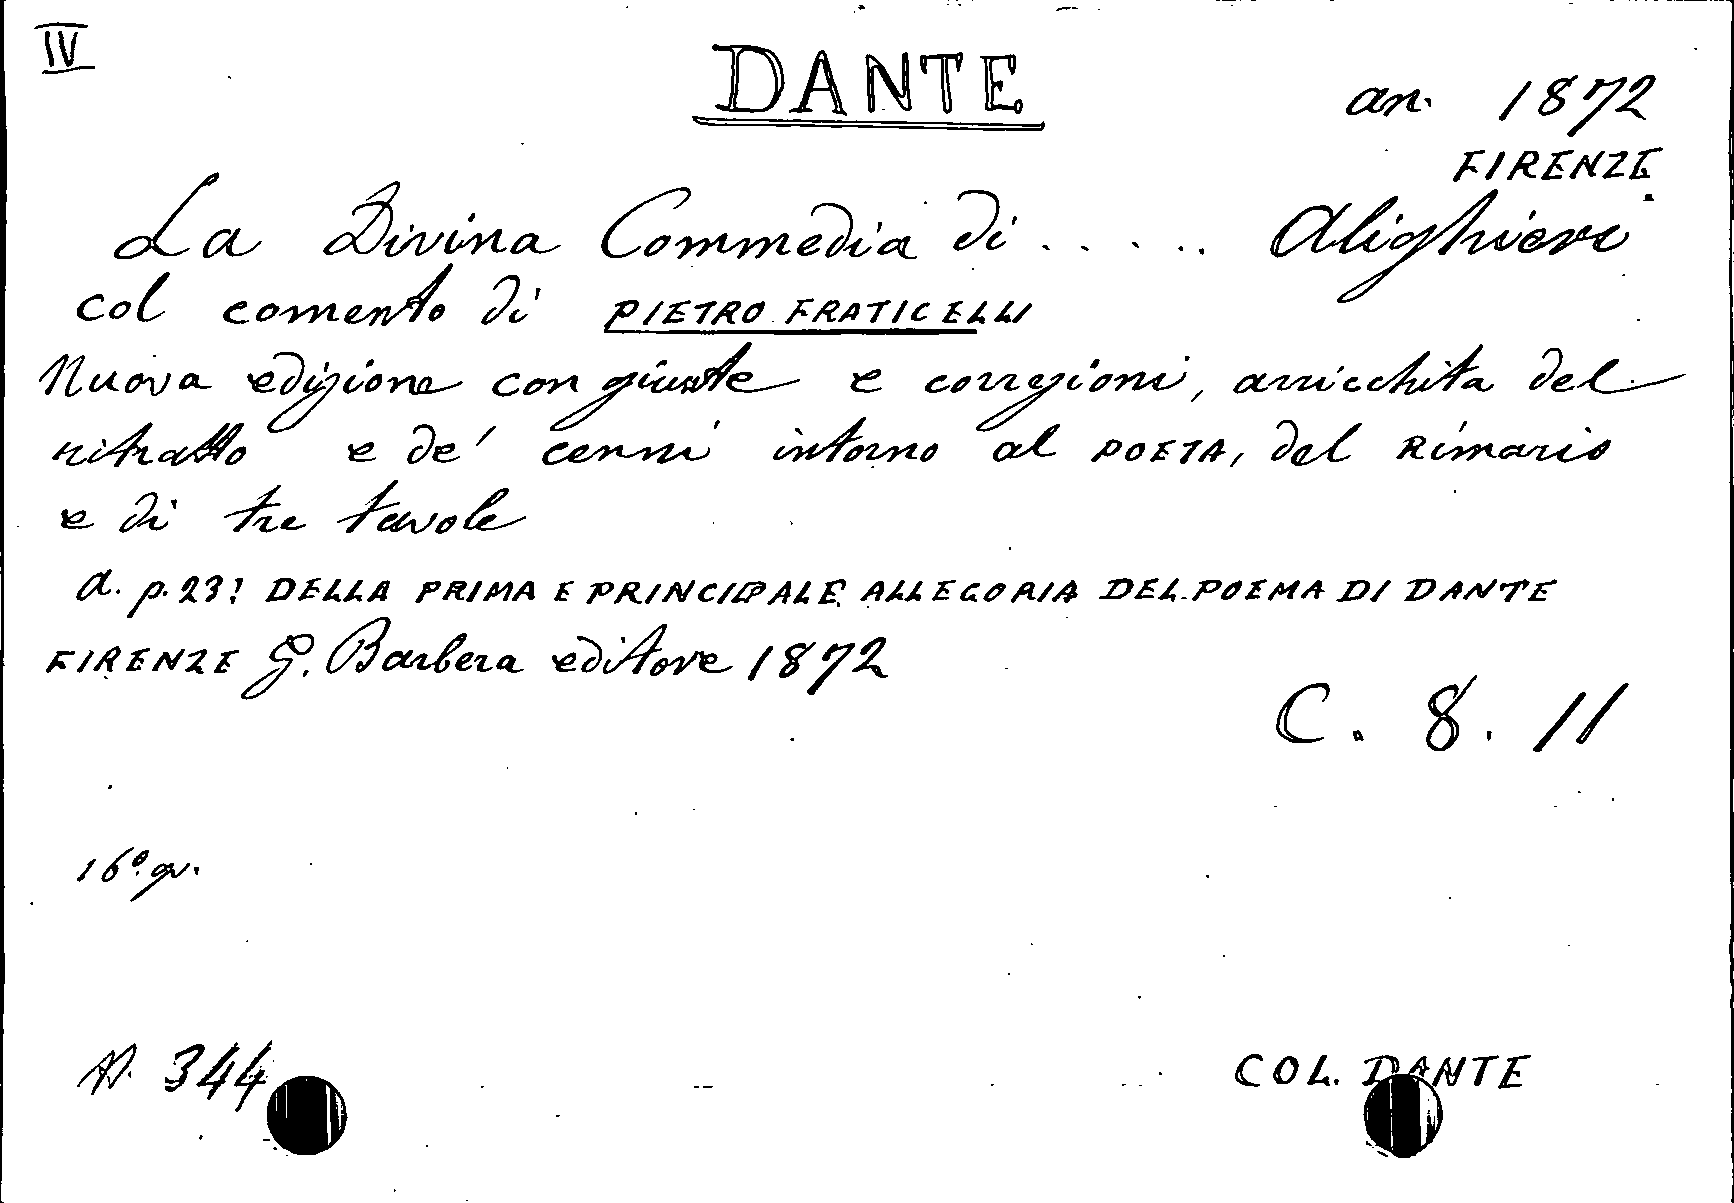 IV
DANTE
an. 1872
FIRENZE
La Divina Commedia di ..... Alighieri
col comento di PIETRO FRATICELLI
Nuova edizione con giunte e corregioni, arricchita del
ritratto e de' cenni intorno al POETA, del Rimario
e di tre tavole
a. p. 23: DELLA PRIMA E PRINCIPALE ALLEGORIA DEL POEMA DI DANTE
FIRENZE G. Barbera editore 1872
C. 8. 11
16º gr.
N. 344
COL. DANTE